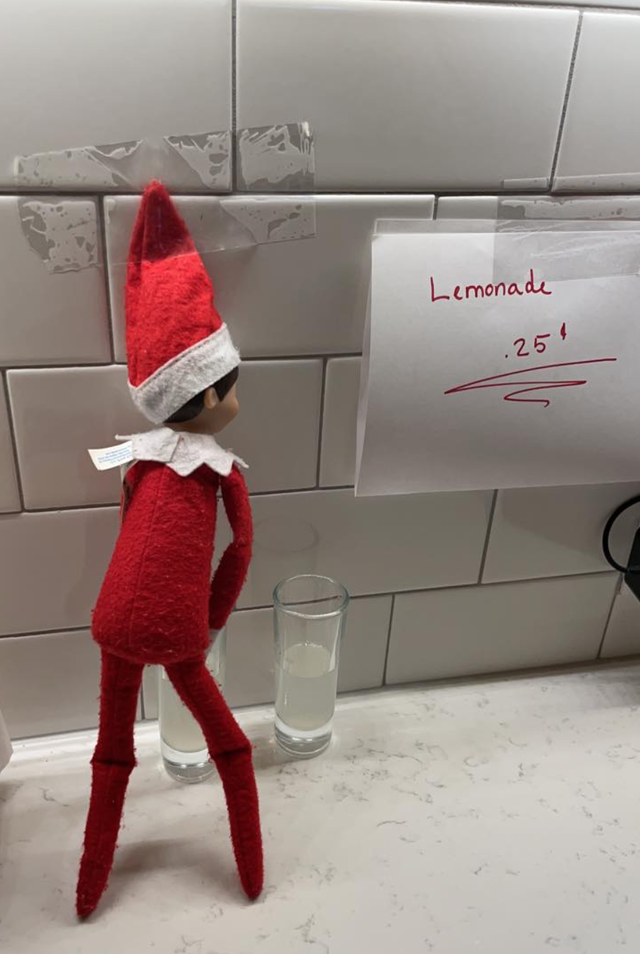 Lemonade
.25¢